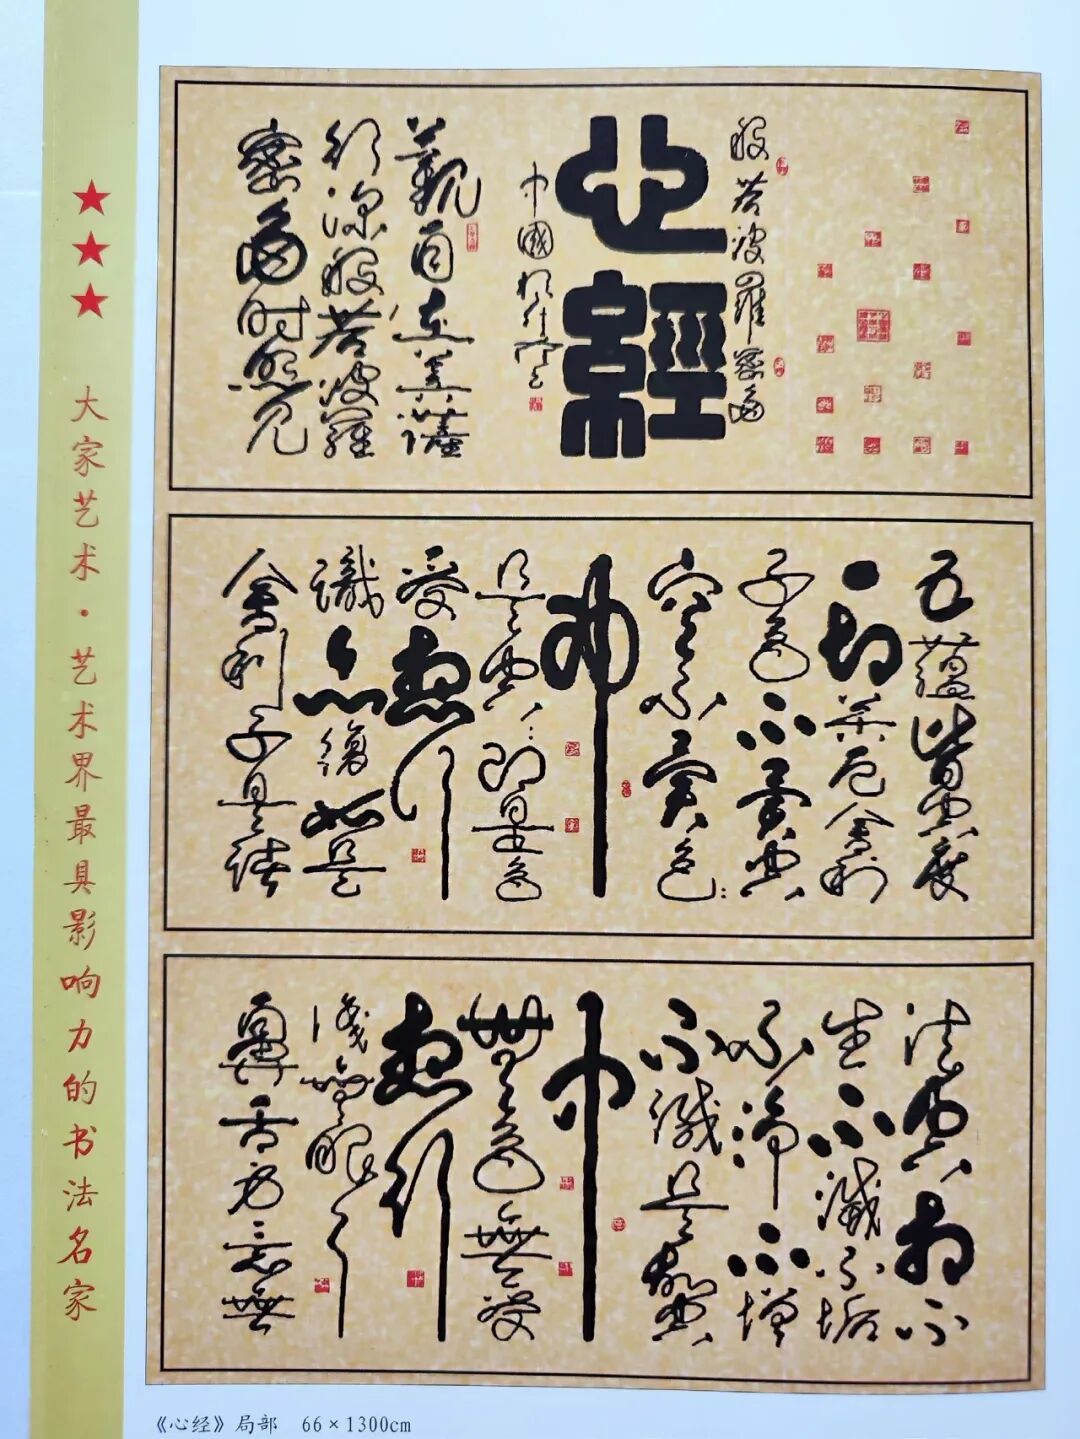 ★★★ 大家艺术·艺术界最具影响力的书法名家
般若波羅蜜多
心經
中國
觀自在菩薩
行深般若波羅
蜜多时照见
五蘊皆空度
一切苦厄舍利
子色不異空
空不異色
是空即是色
受想行
識亦復如是
舍利子是諸
法空相不
生不滅不垢
不淨不增
不減是故空
中
無色無受
想行
識無眼耳
鼻舌身意無
《心经》局部 66×1300cm